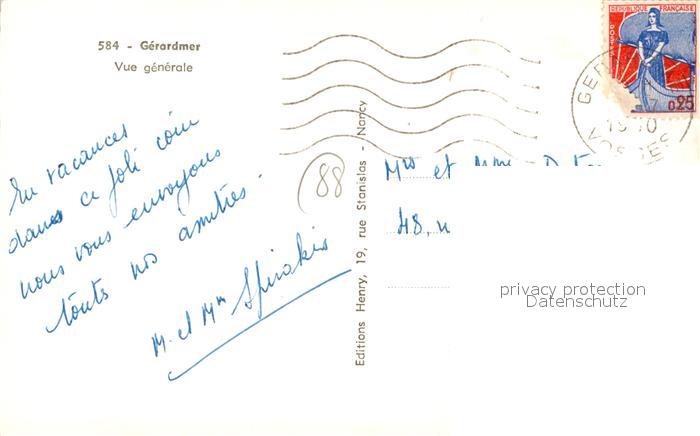 584 - Gérardmer
Vue générale
En vacances
dans ce joli coin
nous vous envoyons
touts nos amitiés.
M. et Mm Spirakis
88
Editions Henry, 19, rue Stanislas - Nancy
REPUBLIQUE FRANÇAISE
0,25
VOSGES
Mrs et Mme
48, 
privacy protection
Datenschutz